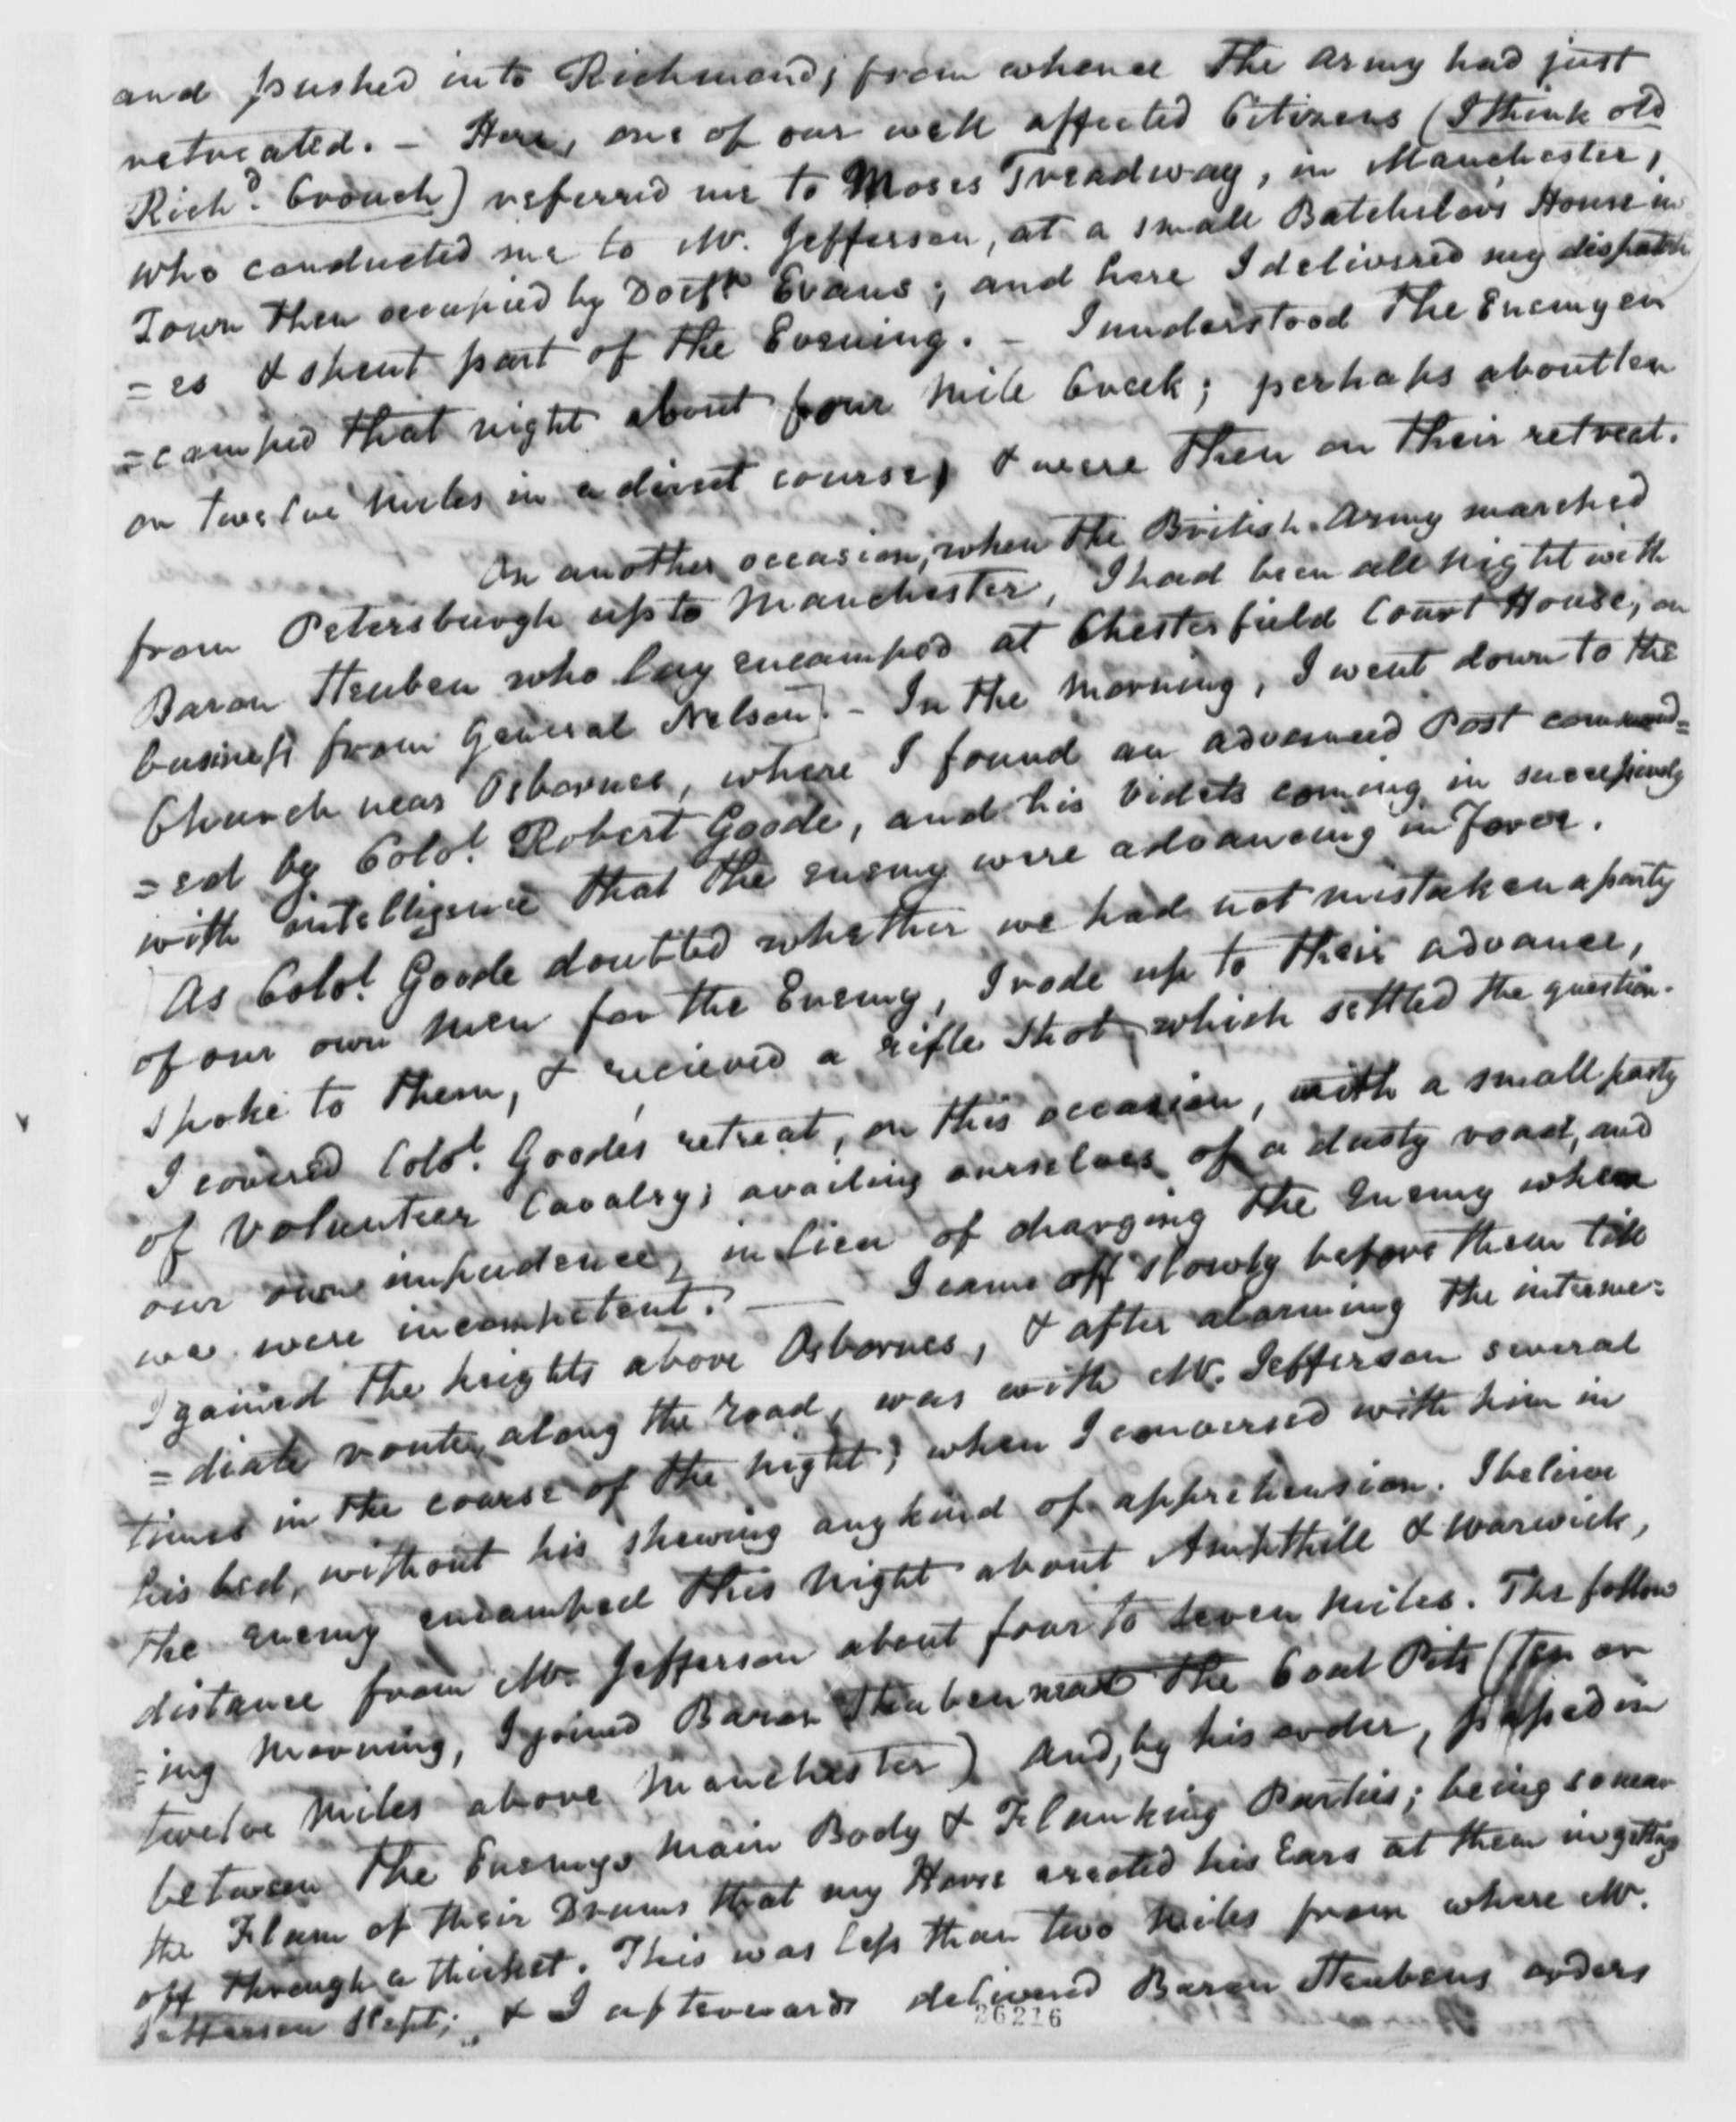 and pushed into Richmond; from whence The Army had just
retreated. – Here, one of our well affected Citizens (I think old
Richd. Crouch) referred me to Moses Treadway, in Manchester,
who conducted me to Mr. Jefferson, at a small Batchelor's House in
Town then occupied by Doctr Evans; and here I delivered my dispatch
=es & spent part of the Evening. – I understood The Enemy en
=camped that night about four Mile Creek; perhaps about ten
or twelve Miles in a direct course, & were Then on Their retreat.
On another occasion, when The British Army marched
from Petersburgh up to Manchester, I had been all Night with
Baron Steuben who lay encamped at Chesterfield Court House, on
business from General Nelson. – In The Morning, I went down to the
Church near Osbornes, where I found an advanced Post command=
=ed by Colol. Robert Goode, and his Videts coming in successively
with intelligence that The enemy were advancing in Force.
As Colol. Goode doubted whether we had not mistaken a party
of our own Men for the Enemy, I rode up to Their advance,
spoke to Them, & recieved a rifle Shot which settled the question.
I covered Colol. Goodes retreat, on this occasion, with a small party
of Volunteer Cavalry; availing ourselves of a dusty road, and
our own impudence, in lieu of charging The Enemy when
we were incompetent. — I came off slowly before them till
I gained The heights above Osbornes, & after alarming The interme=
=diate route, along the road, was with Mr. Jefferson several
times in the course of The Night; when I conversed with him in
his bed, without his shewing any kind of apprehension. I believe
The enemy encamped This Night about Ampthill & Warwick,
distance from Mr. Jefferson about four to seven Miles. The follow
=ing Morning, I joined Baron Steuben near The Coal Pits (Ten or
twelve Miles above Manchester) And, by his order, passed in
between The Enemys Main Body & Flanking Parties; being so near
the Flam of their Drums that my Horse erected his Ears at them in getting
off through a thicket. This was less than two Miles from where Mr.
Jefferson Slept; & I afterwards delivered Baron Steubens orders
26216